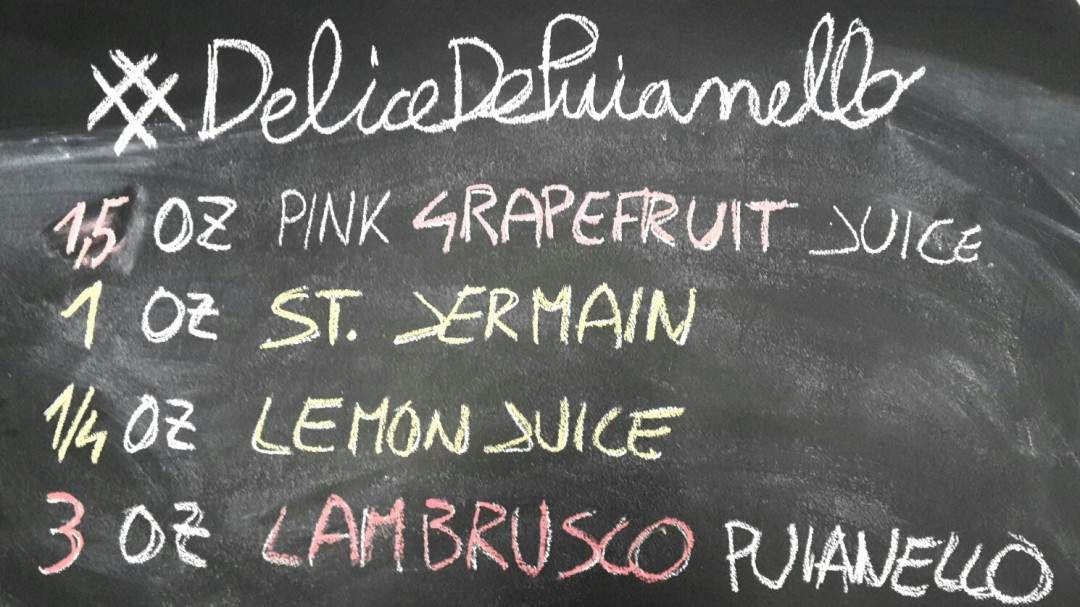 #DeliceDePuianello
1,5 OZ PINK GRAPEFRUIT JUICE
1 OZ ST. JERMAIN
1/4 OZ LEMON JUICE
3 OZ LAMBRUSCO PUIANELLO